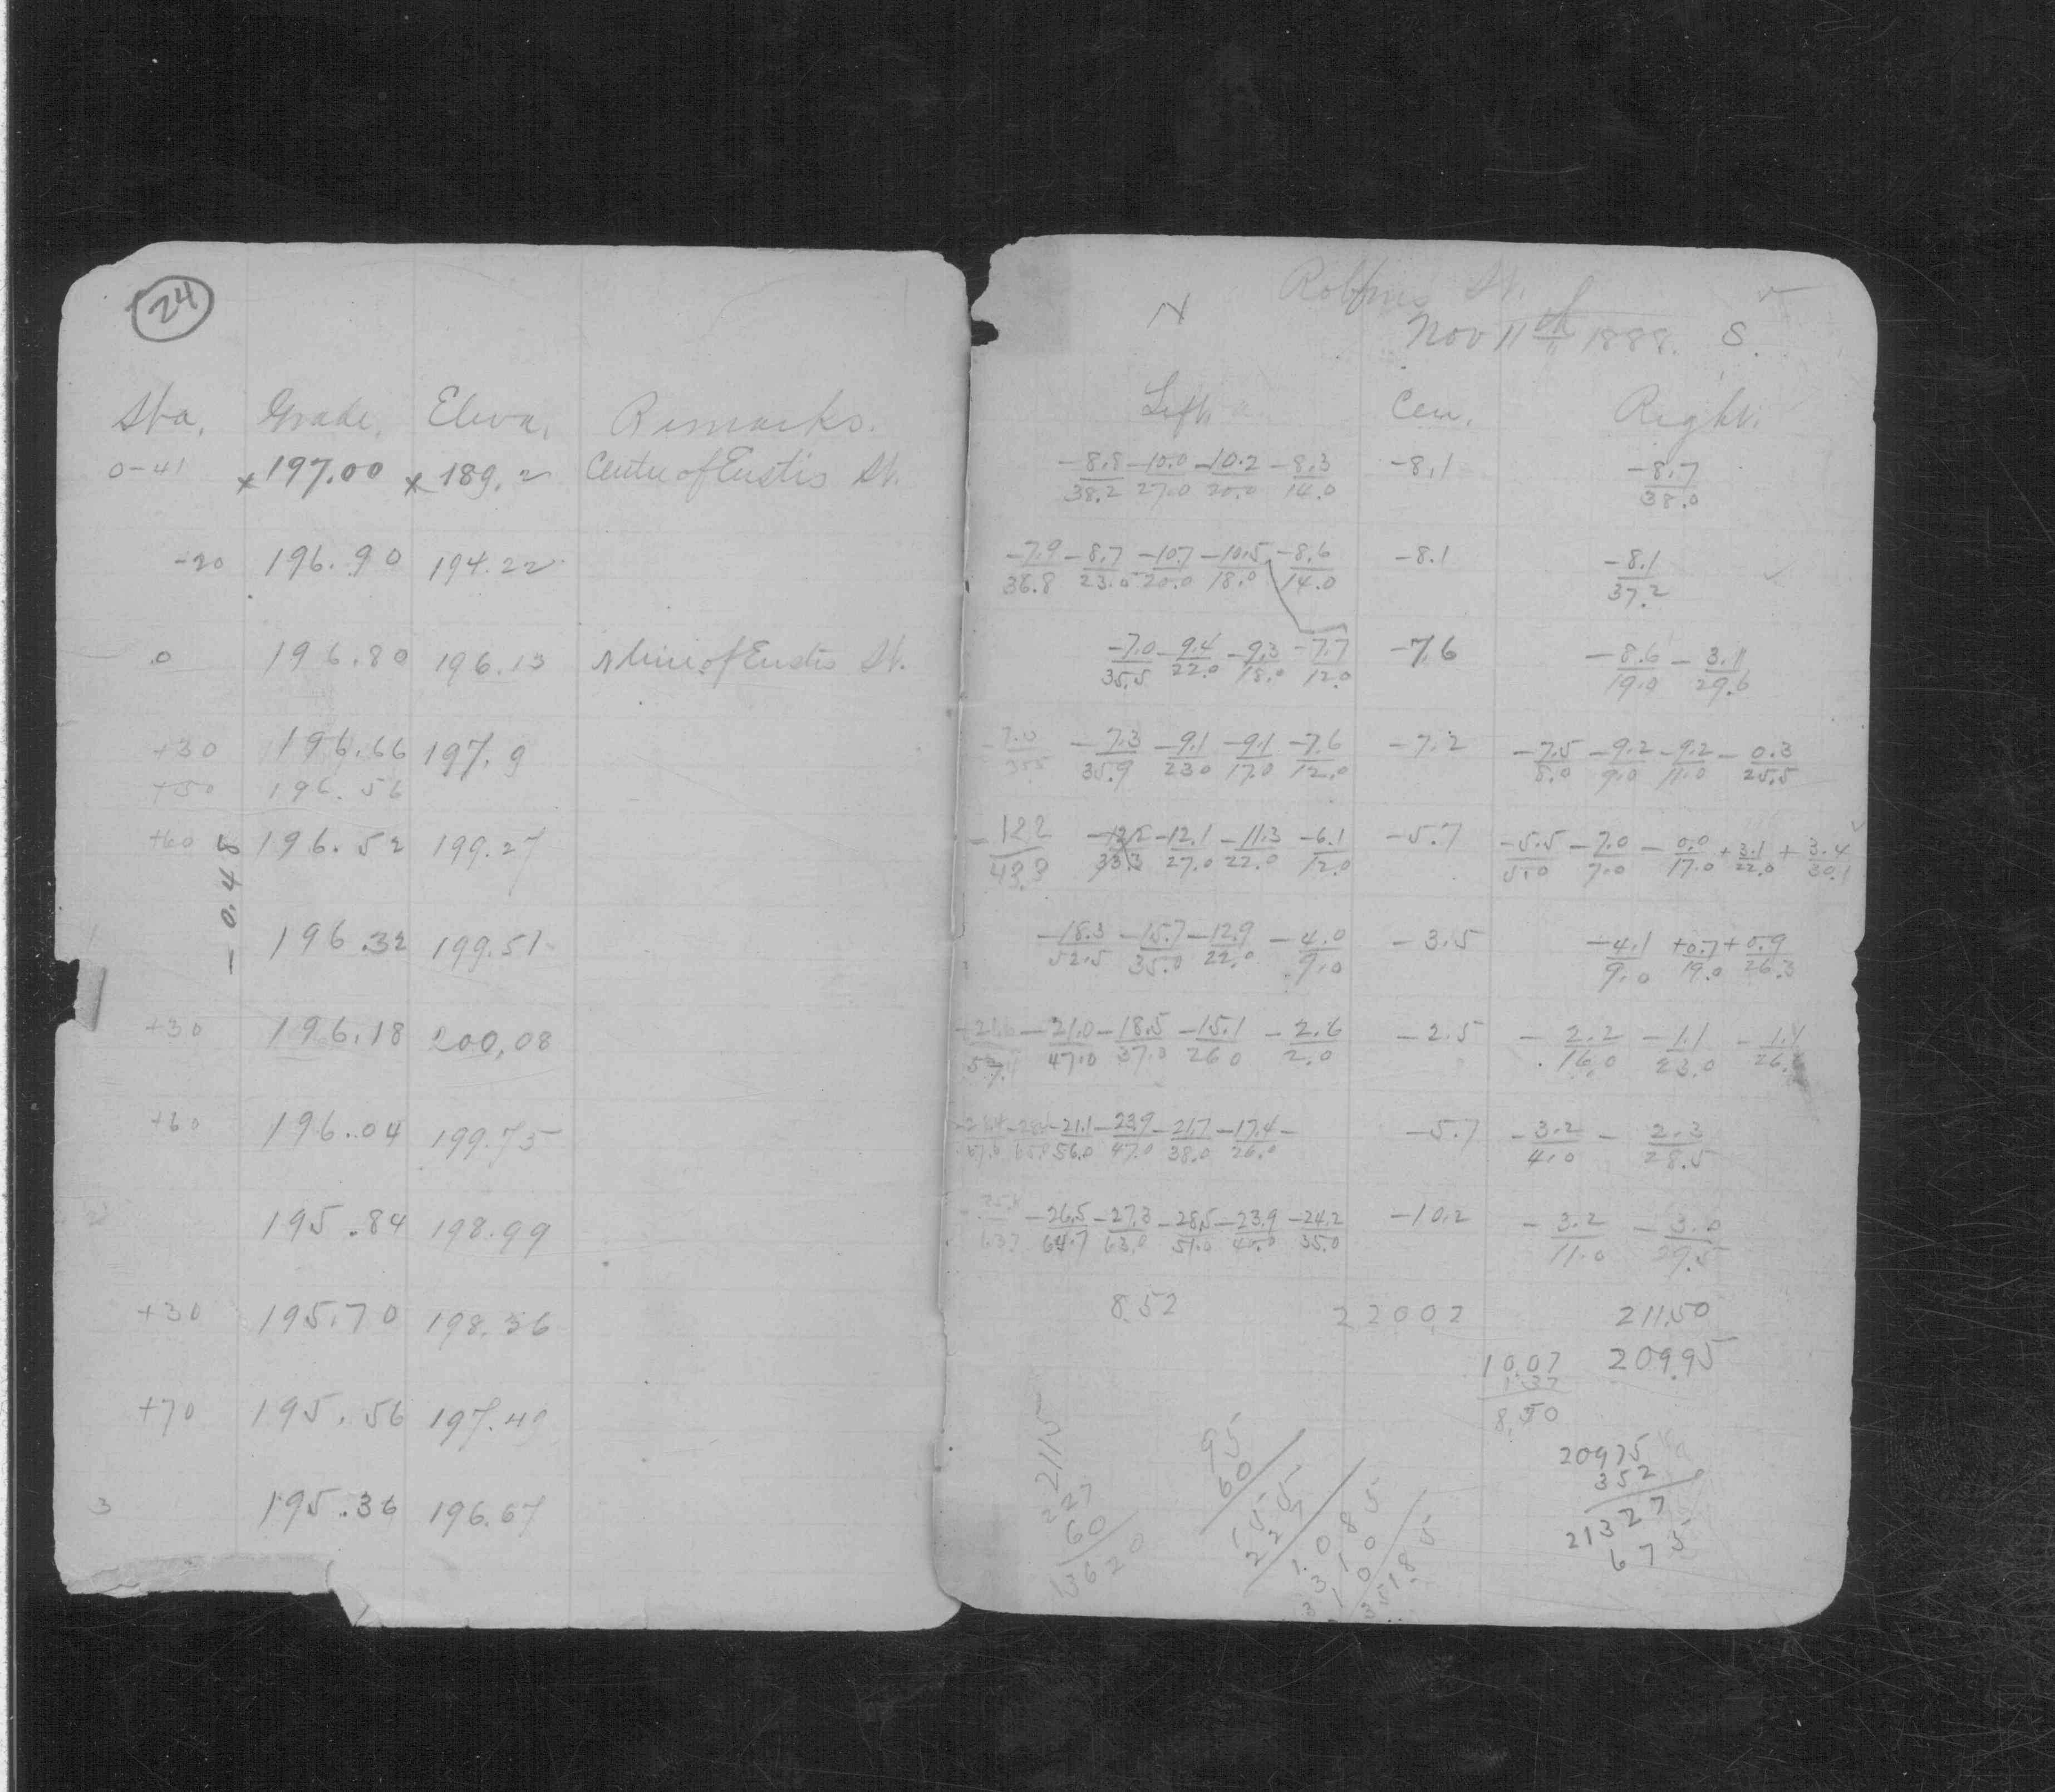 24
Sta. Grade. Eleva. Remarks.
0-41 x 197.00 x 189.2 Centre of Eustis St.
-20 196.90 194.22
0 196.80 196.13 line of Eustis St.
+30 196.66 197.9
+50 196.56
+60 196.52 199.27
- 0.48
196.32 199.51
+30 196.18 200.08
+60 196.04 199.75
2 195.84 198.99
+30 195.70 198.36
+70 195.56 197.49
3 195.36 196.67
Robbins St.
N Nov 11th 1888. S.
Left Cen. Right.
-8.8/38.2 -10.0/27.0 -10.2/20.0 -8.3/14.0 -8.1 -8.7/38.0
-7.9/36.8 -8.7/23.0 -10.7/20.0 -10.5/18.0 -8.6/14.0 -8.1 -8.1/37.2
-7.0/35.5 -9.4/22.0 -9.3/18.0 -7.7/12.0 -7.6 -8.6/19.0 -3.1/29.6
-7.0/35.5 -7.3/35.9 -9.1/23.0 -9.1/17.0 -7.6/12.0 -7.2 -7.5/8.0 -9.2/9.0 -9.2/11.0 -0.3/25.5
-12.2/43.3 -12.1/27.0 -11.3/22.0 -6.1/12.0 -5.7 -5.5/5.0 -7.0/7.0 -0.0/17.0 +3.1/22.0 +3.4/30.1
-18.3/52.5 -15.7/35.0 -12.9/22.0 -4.0/9.0 -3.5 -4.1/9.0 +0.7/19.0 +0.9/26.3
-21.0/47.0 -18.5/37.0 -15.1/26.0 -2.6/2.0 -2.5 -2.2/16.0 -1.1/23.0 -1.1
-21.1/56.0 -23.9/47.0 -21.7/38.0 -17.4/26.0 - -5.7 -3.2/4.0 -2.3/28.5
-26.5/64.7 -27.3/63.0 -28.5/51.0 -23.9/40.0 -24.2/35.0 -10.2 -3.2/11.0 -3.0/29.5
8.52 22002 211.50
10.07 209.95
1.37
8.50
2115
227
60
13620
95
60
155
227
1.085
310
310
35185
20975
352
21327
673